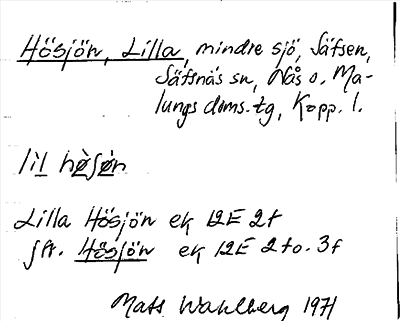 Hösjön, Lilla, mindre sjö, Säfsen,
Säfsnäs sn, Nås o. Ma-
lungs doms.tg, Kopp. l.
lìl hø̀sjø̀n
Lilla Hösjön ek 12E 2f
jfr. Hösjön ek 12E 2f o. 3f
Mats Wahlberg 1971